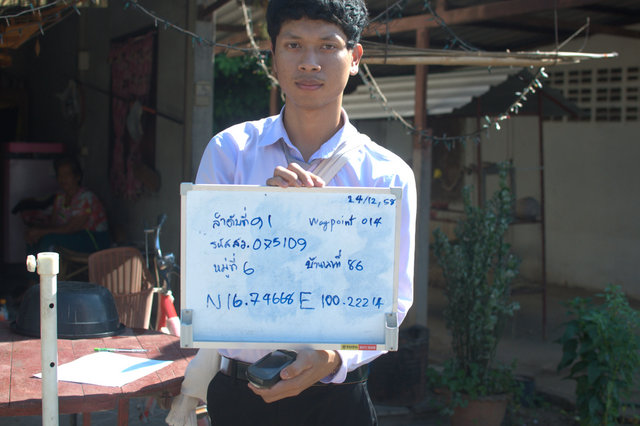 24/12/58
ลำดับที่ 91 Waypoint 014
รหัสสว. 075109
หมู่ที่ 6 บ้านเลขที่ 86
N 16.74668 E 100.22214